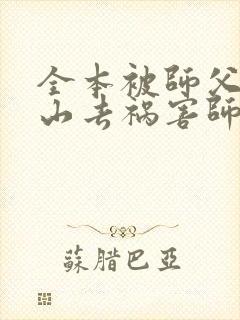 全本被師父
山去禍害師
蘇腊巴亞